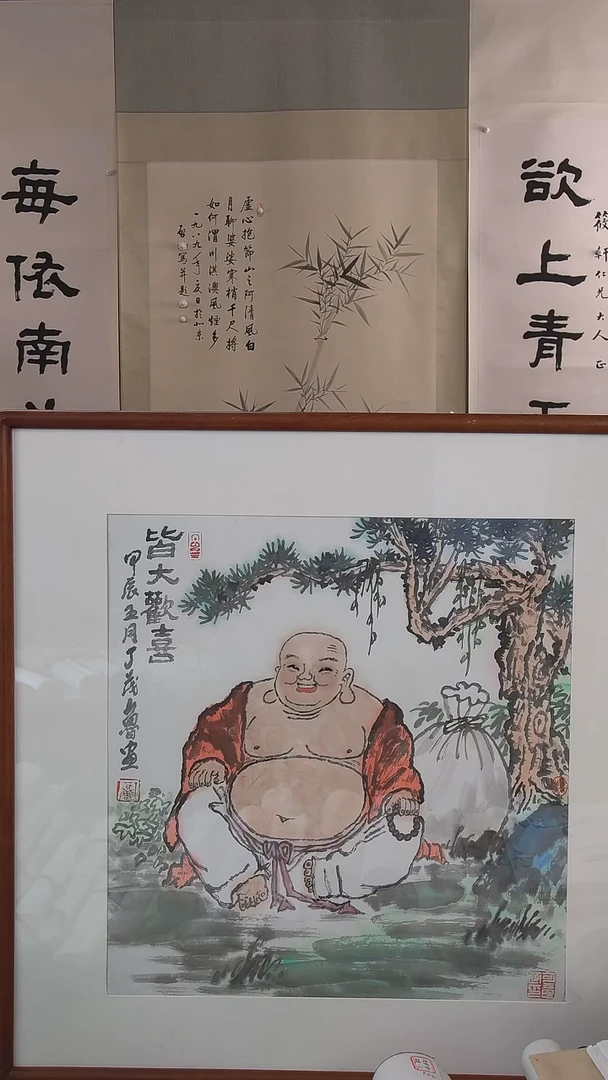 筱軒仁兄大人正
欲上青
虛心抱節山之阿清風白
月聊婆娑寒梢千尺將
如何渭川淇澳風煙多
一九八九年夏日於北京
每依南
皆大歡喜
甲辰五月丁茂魯畫